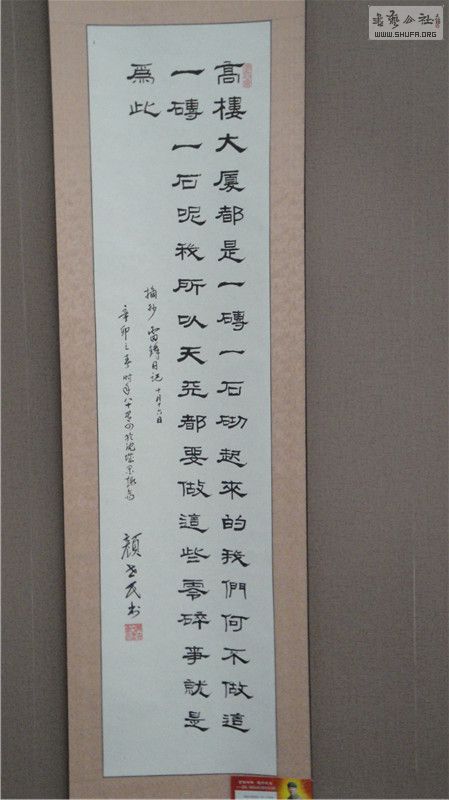 高樓大廈都是一磚一石砌起來的我們何不做這
一磚一石呢我所以天天都要做這些零碎事就是
爲此
摘抄雷鋒日記十月十六日
辛卯之春時年八十
顏
民书
書藝公社
WWW.SHUFA.ORG